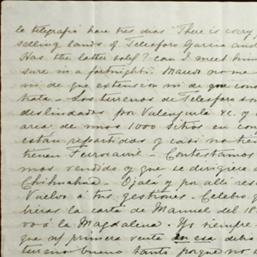 le telegrafié hace tres dias "There is every
selling lands of Telesforo Garcia and
Has the latter sold? Can I meet him
sure in a fortnight.
ni de que extension ni de que cons
trata — Los terrenos de Telesforo son
deslindados por Valenzuela &c. y
areas de unos 1000 sitios en con
estan repartidos y casi no tie
tienen Ferrocarril — Contestamos
mos vendido y que se dirigiera
Chihuahua — Ojala y por allí res
Vuelvo á tus gestiones. Celebro q
bieras la carta de Manuel del 18
vo á la Magdalena. Yo siempre
que mi primera venta en esa debe
terreno bueno tanto porque no